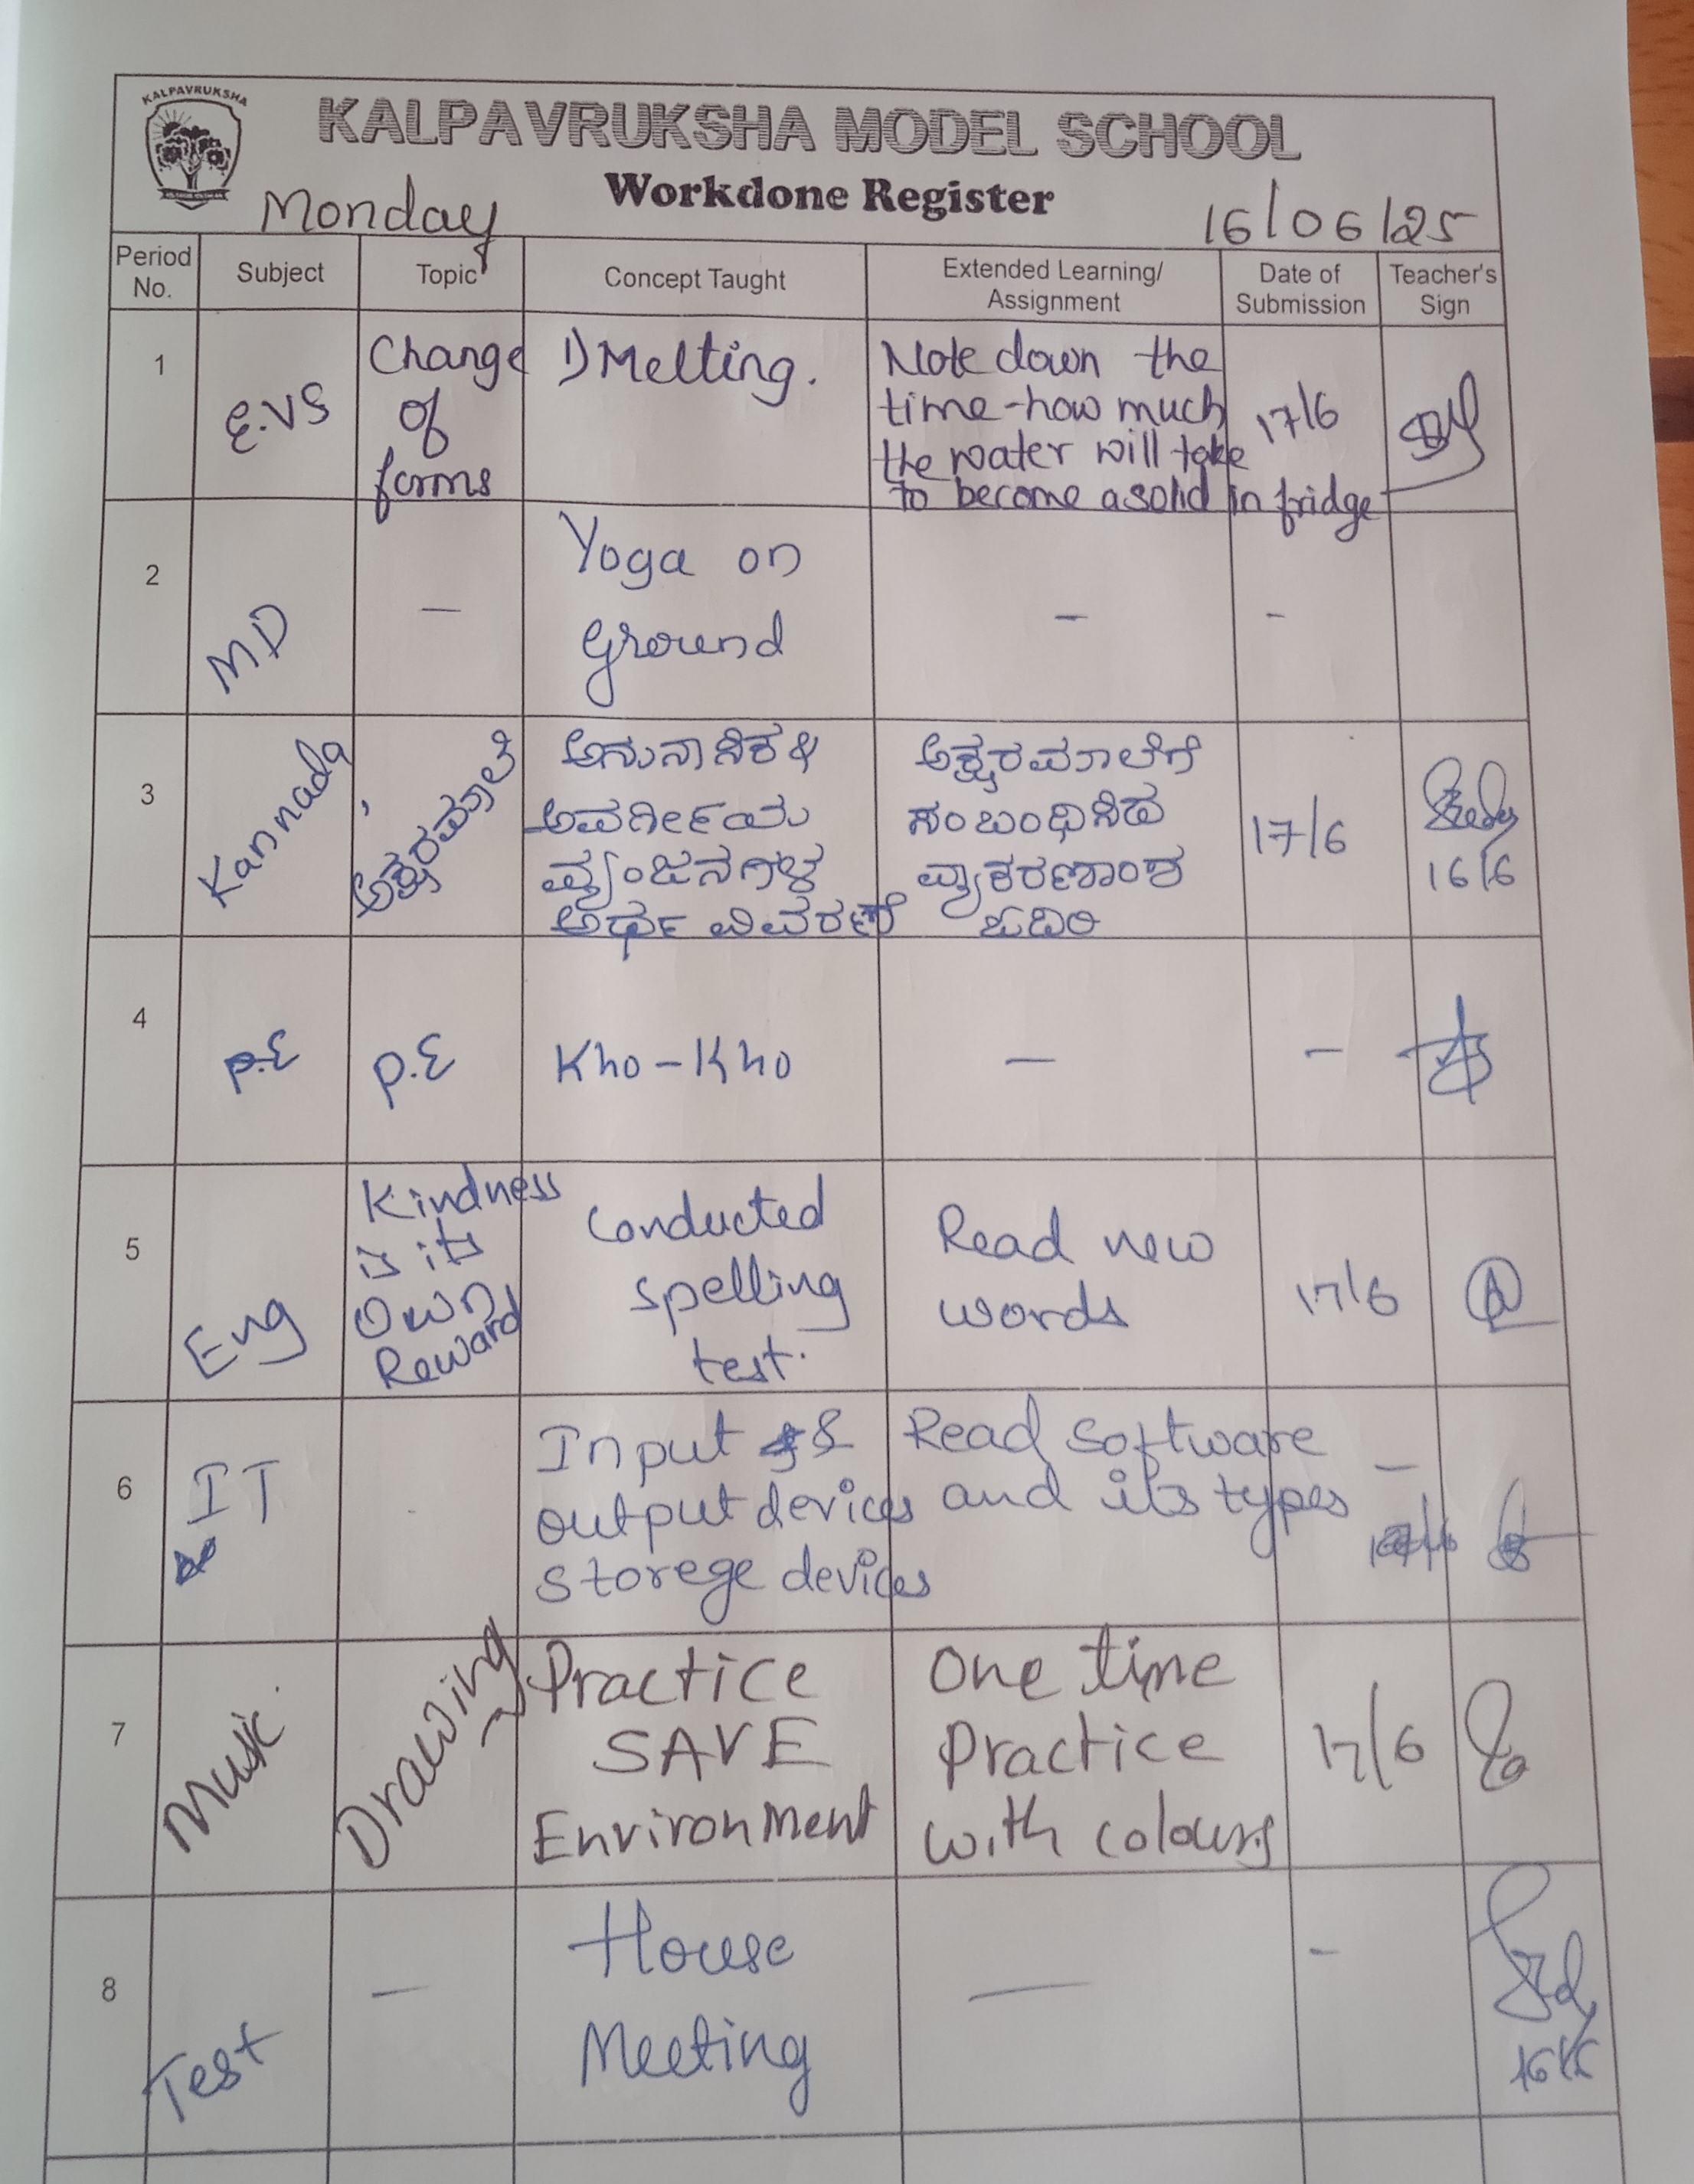 KALPAVRUKSHA
KALPAVRUKSHA MODEL SCHOOL
Workdone Register
Monday 16/06/25
Period No. Subject Topic Concept Taught Extended Learning/ Assignment Date of Submission Teacher's Sign
1 E.VS
Change
of
forms
1) Melting.
Note down the
time-how much
the water will take
to become a solid in fridge
17/6
2 MD
—
Yoga on
Ground
— -
3 Kannada
ಅಕ್ಷರಮಾಲೆ
ಅನುನಾಸಿಕ &
ಅವರ್ಗೀಯ
ವ್ಯಂಜನಗಳ
ಅರ್ಥ ವಿವರಣೆ
ಅಕ್ಷರಮಾಲೆಗೆ
ಸಂಬಂಧಿಸಿದ
ವ್ಯಾಕರಣಾಂಶ
ಓದಿರಿ
17/6
16/6
4 P.E P.E Kho-Kho — —
5 Eng
Kindness
is its
own
Reward
Conducted
spelling
test.
Read new
words
17/6
6 IT
Input &
output devices
storege devices
Read software
and its types
—
7 Music
Drawing
Practice
SAVE
Environment
One time
Practice
with colours
17/6
8 Test
—
House
Meeting
— -
16/6